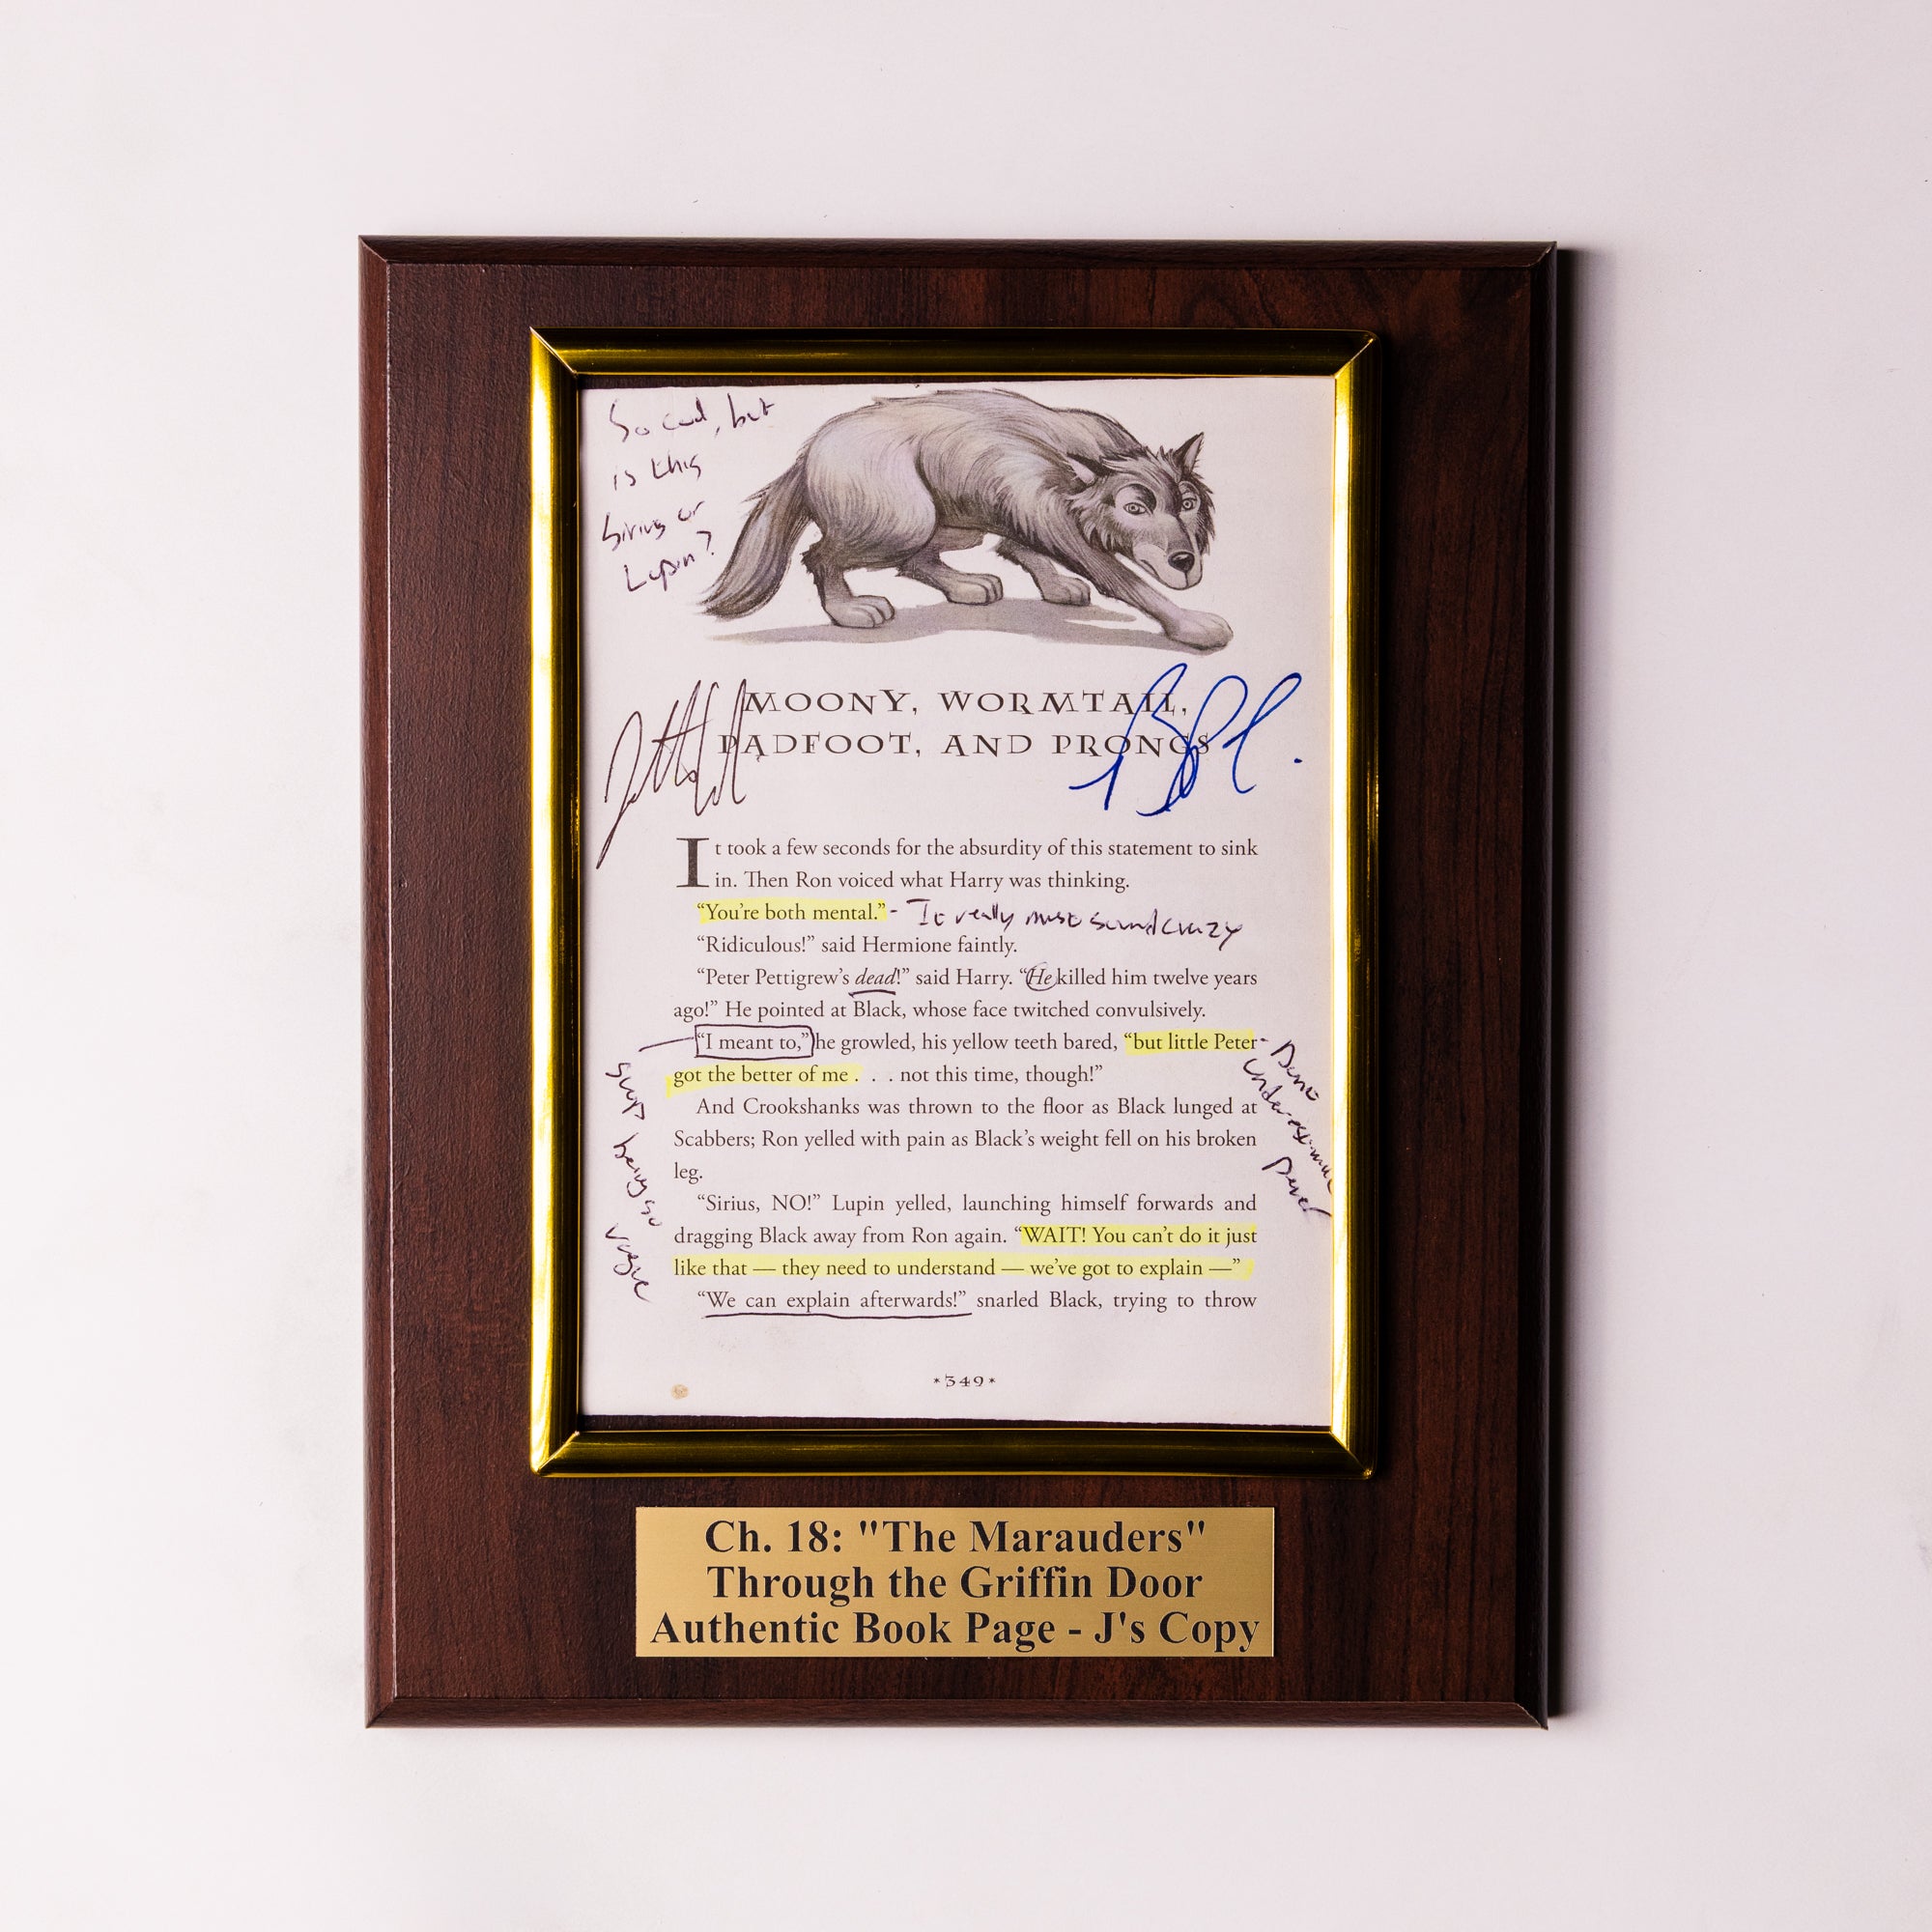 So cool, but
is this
Sirius or
Lupin?
MOONY, WORMTAIL,
PADFOOT, AND PRONGS
It took a few seconds for the absurdity of this statement to sink
in. Then Ron voiced what Harry was thinking.
“You’re both mental.” - It really must sound crazy
“Ridiculous!” said Hermione faintly.
“Peter Pettigrew’s dead!” said Harry. “He killed him twelve years
ago!” He pointed at Black, whose face twitched convulsively.
“I meant to,” he growled, his yellow teeth bared, “but little Peter
got the better of me . . . not this time, though!”
And Crookshanks was thrown to the floor as Black lunged at
Scabbers; Ron yelled with pain as Black’s weight fell on his broken
leg.
“Sirius, NO!” Lupin yelled, launching himself forwards and
dragging Black away from Ron again. “WAIT! You can’t do it just
like that — they need to understand — we’ve got to explain —”
“We can explain afterwards!” snarled Black, trying to throw
stop being so vague
*349*
Ch. 18: "The Marauders"
Through the Griffin Door
Authentic Book Page - J's Copy